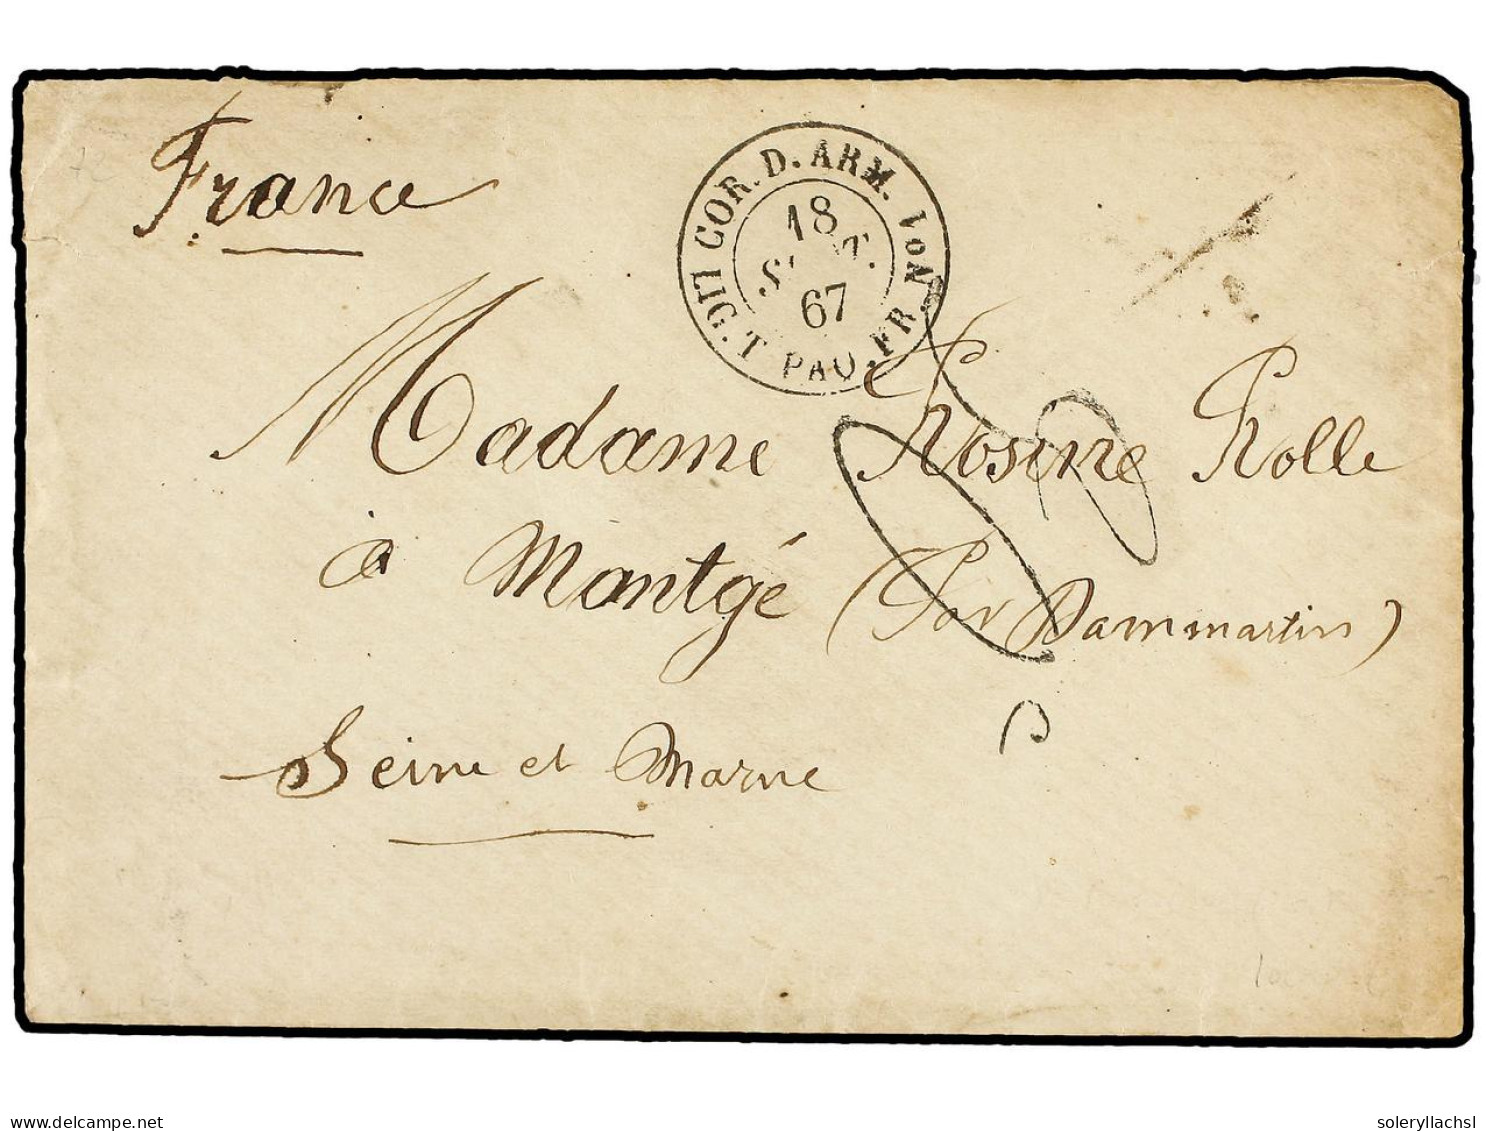 France
COR. D. ARM. LIG. T PAQ. FR. No 1
18
SEPT.
67
Madame Rosine Rolle
à Montgé (Par Dammartin)
Seine et Marne
delcampe.net
soleryllachsl